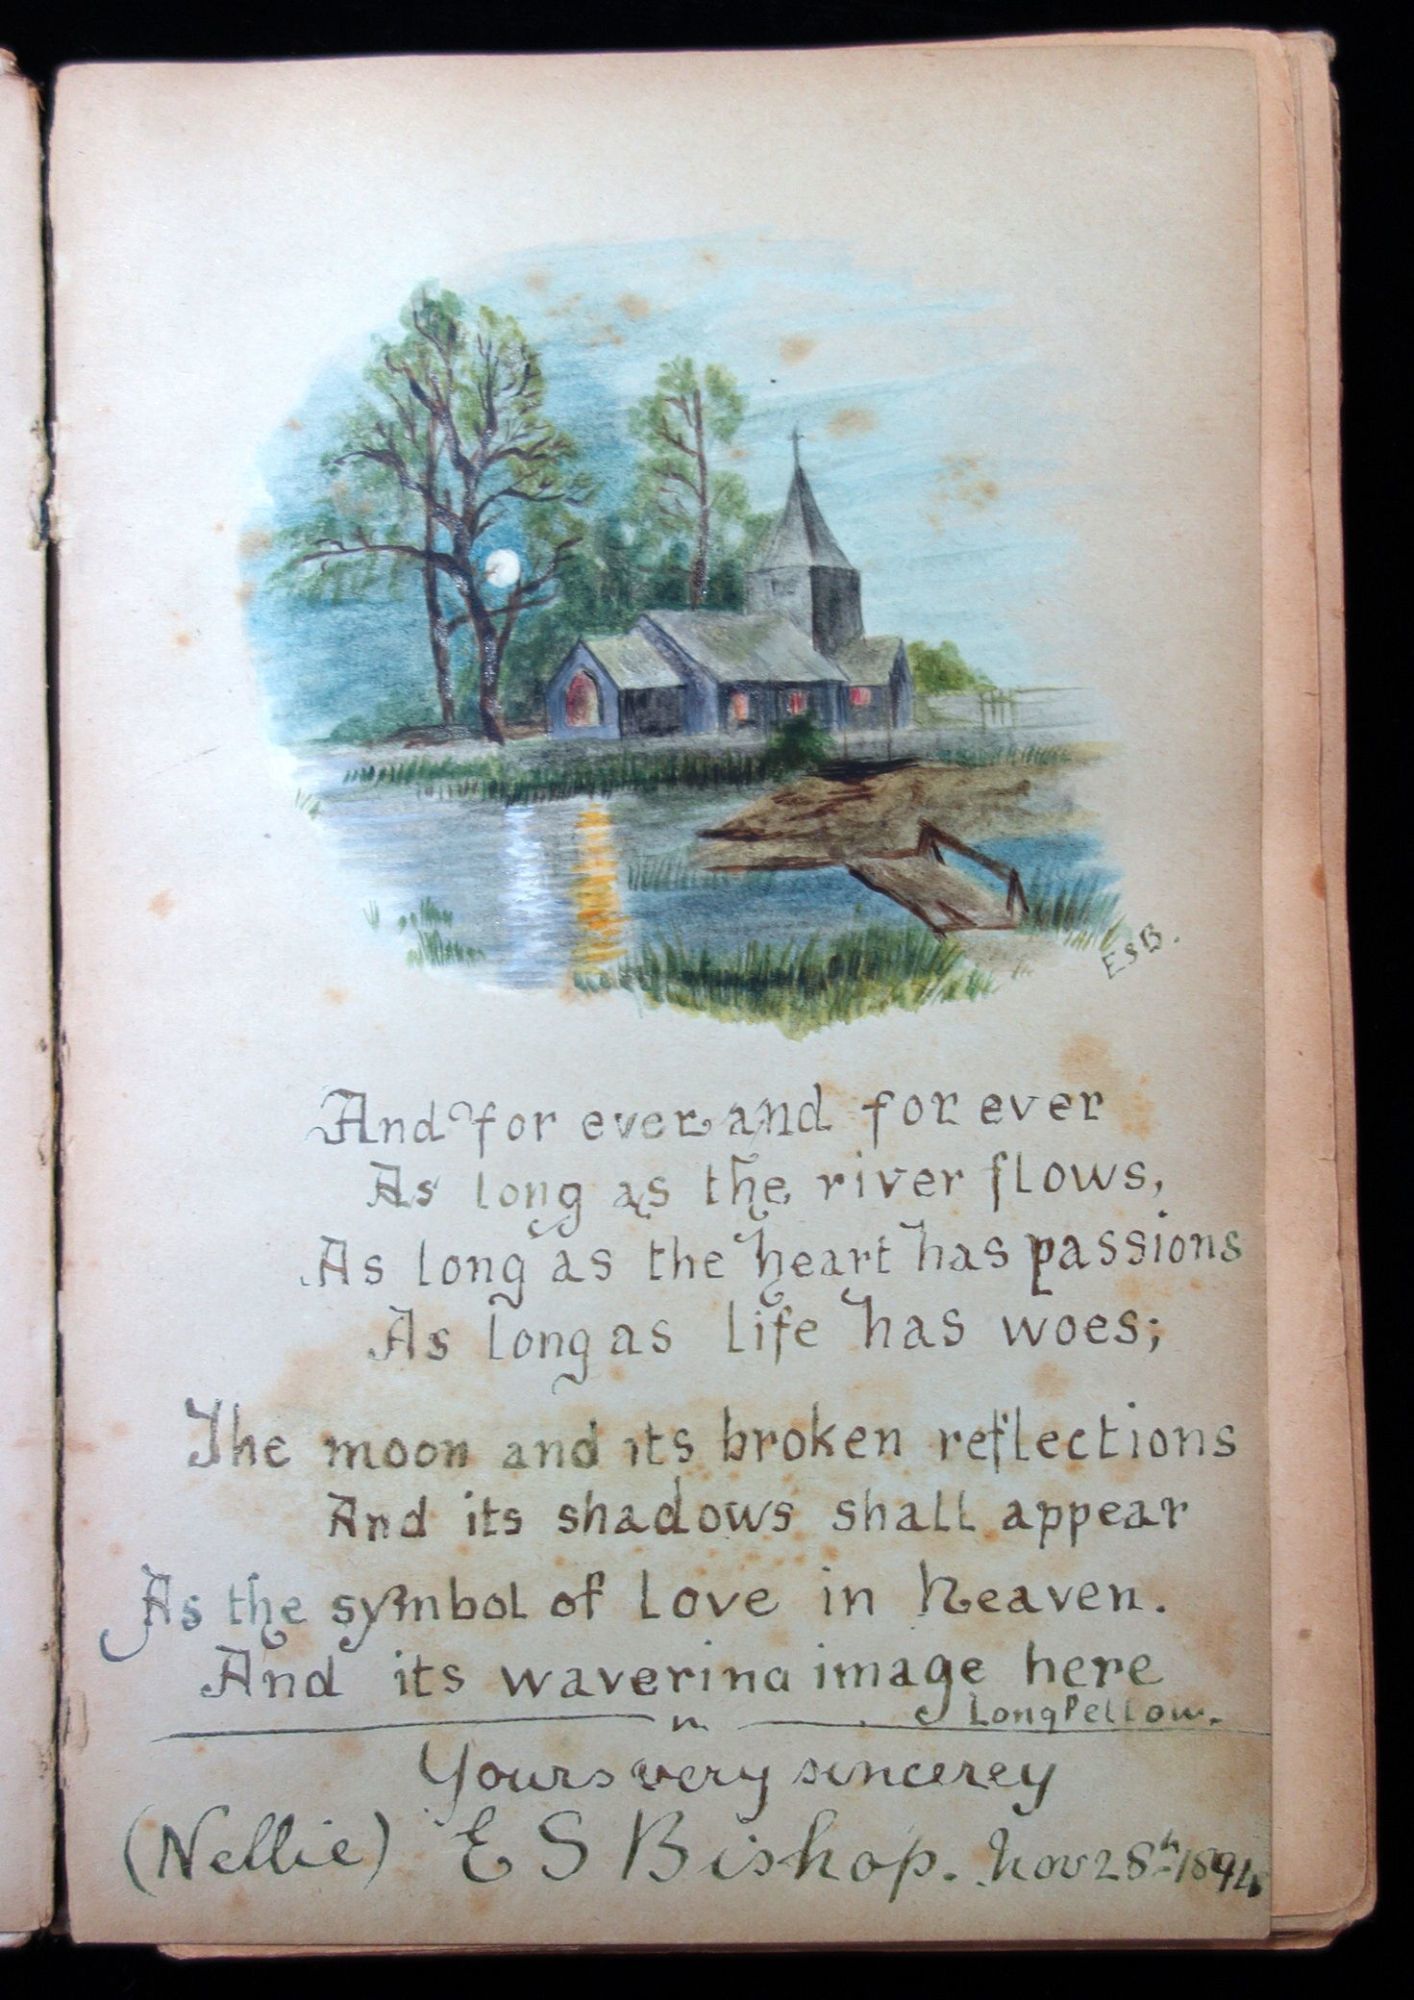 ESB.
And for ever and for ever
As long as the river flows,
As long as the heart has passions
As long as life has woes;
The moon and its broken reflections
And its shadows shall appear
As the symbol of love in heaven.
And its wavering image here
Longfellow.
Yours very sincerey
(Nellie) E S Bishop. Nov 28th 1894